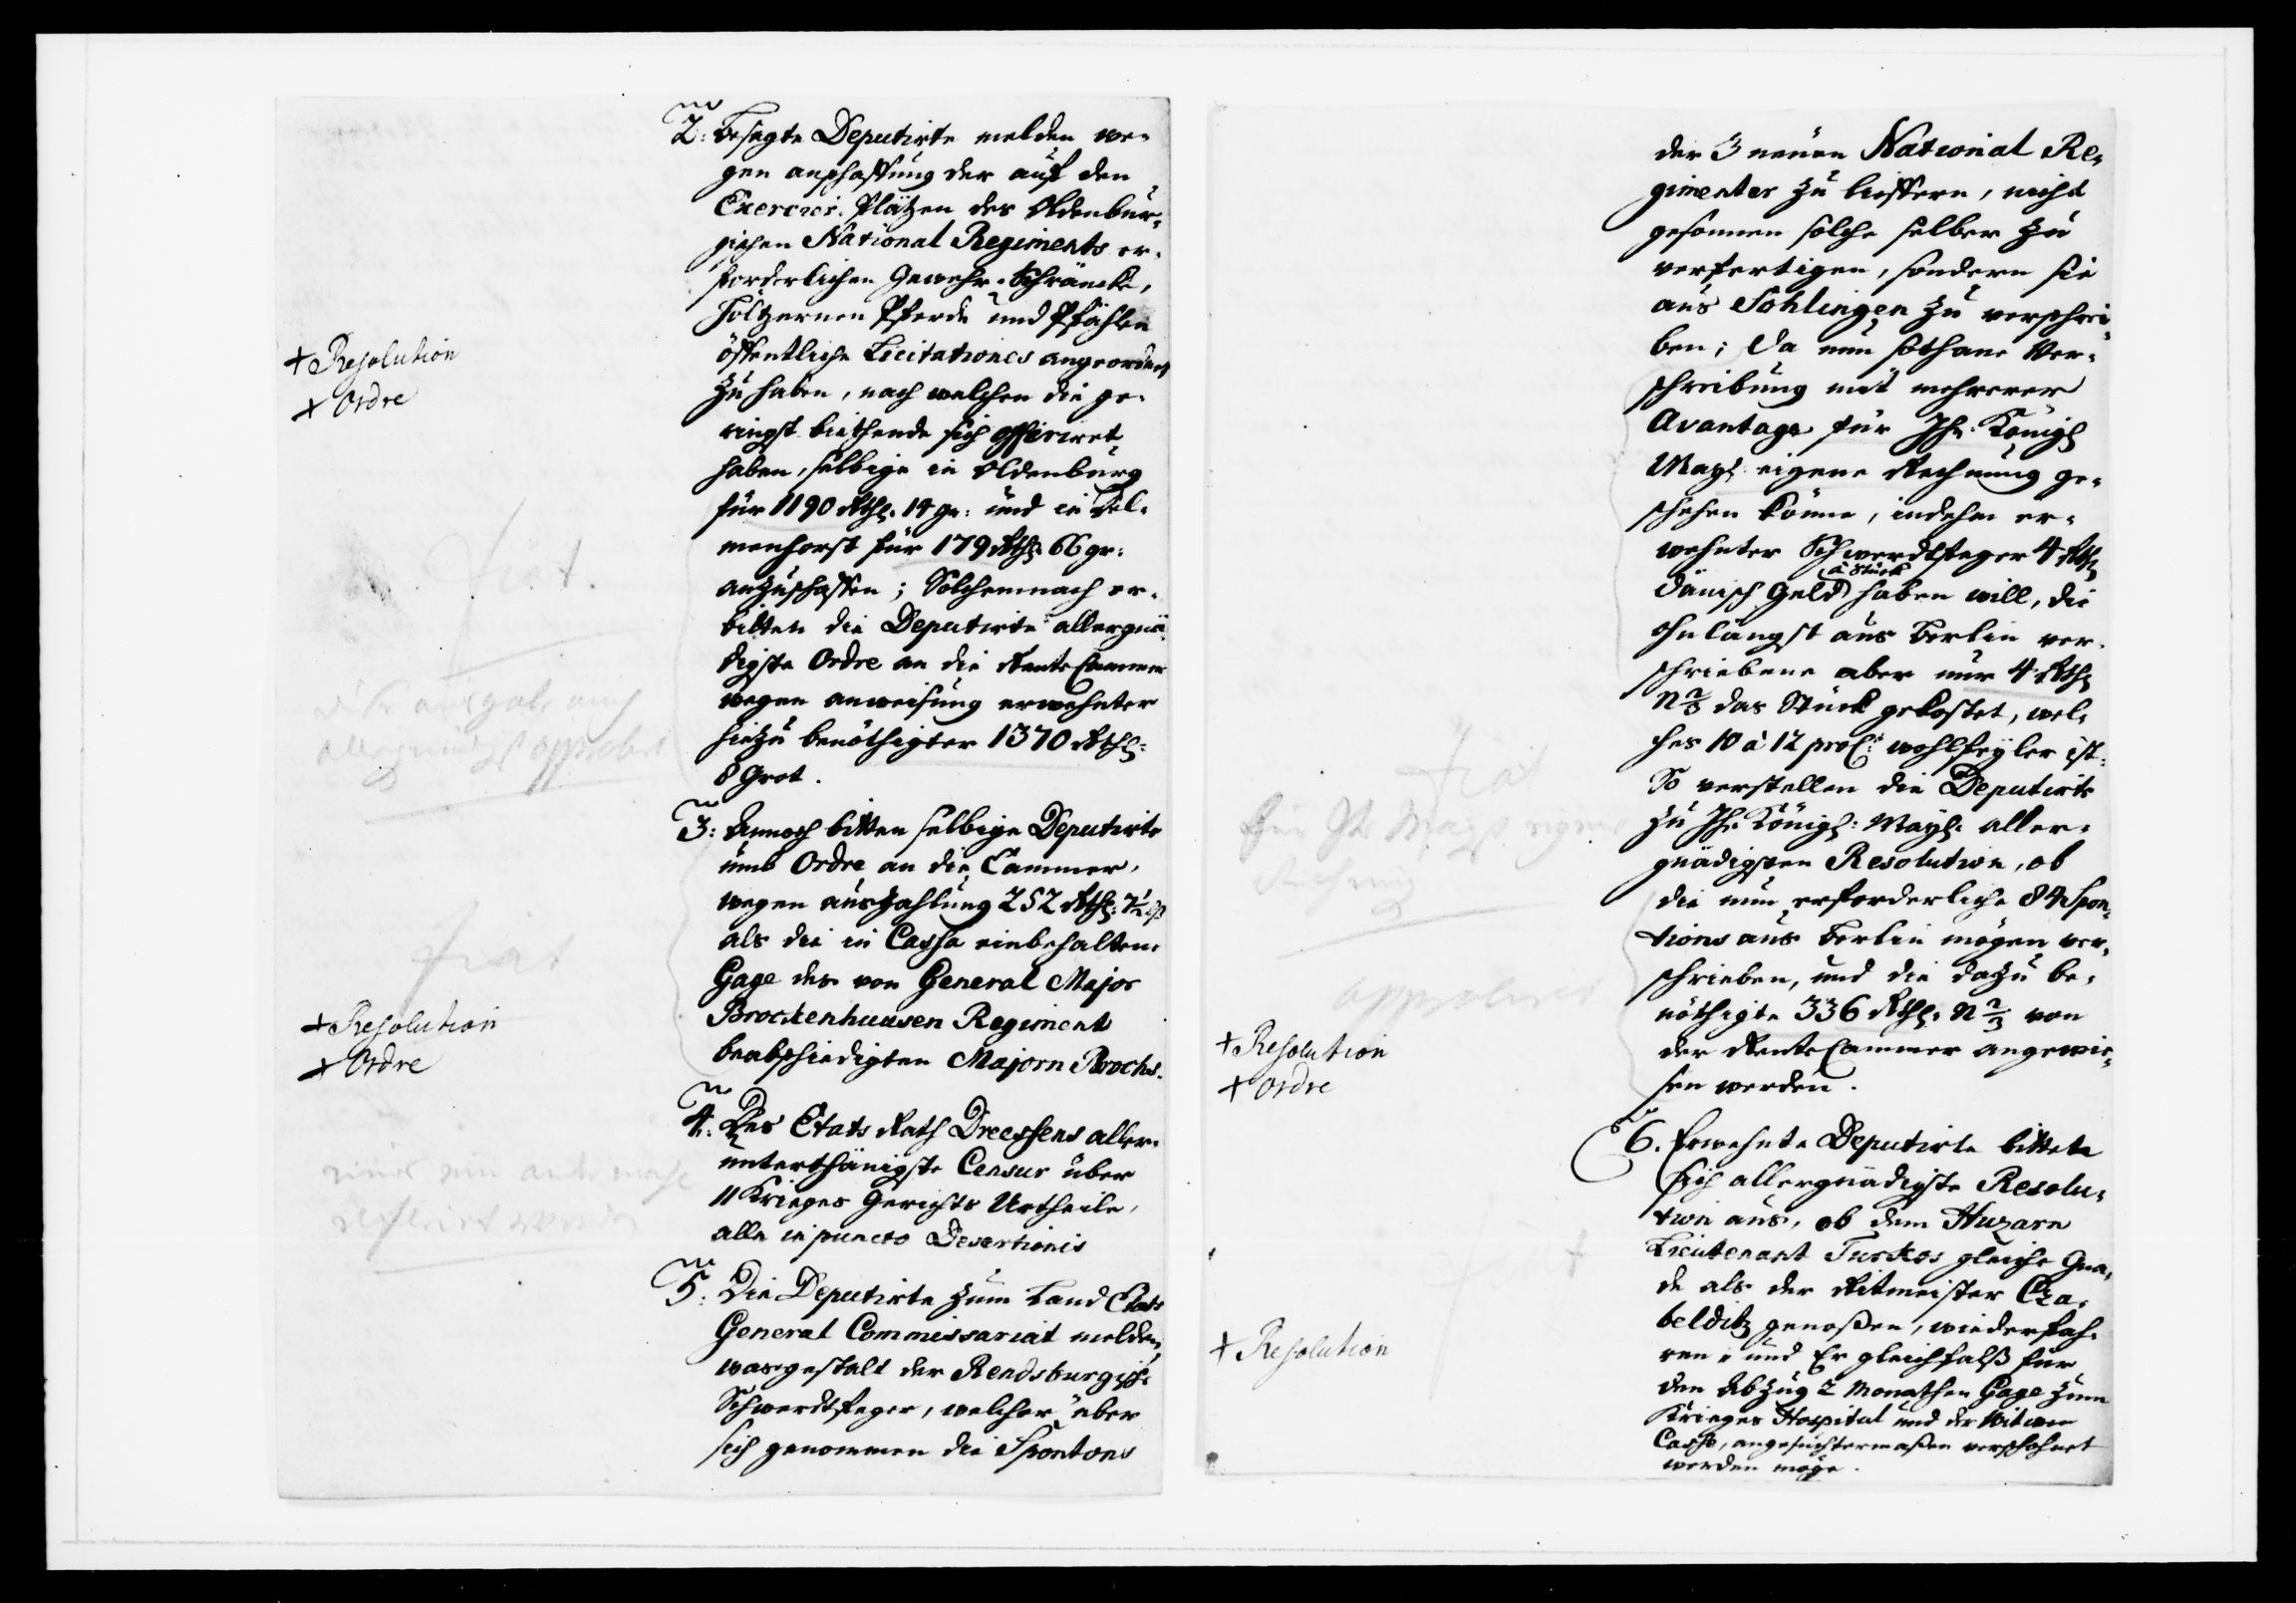 2. Besagte Deputirte melden we-
gen anschaffung der auf den
Exercier-Plätzen des Oldenbur-
gischen National Regiments er-
forderlichen Gewehr-Schräncke,
höltzernen Pferde und Pfählen
öffentliche Licitationes angeordnet
zu haben, nach welchen die ge-
ringst biethende sich offeriret
haben, selbige in Oldenburg
für 1190 Rthl. 14 gr: und in Del-
menhorst für 179 Rthl: 66 gr:
anzuschaffen; Solchemnach er-
bitten die Deputirte allergnä-
digste Ordre an die Rente Cammer
wegen anweisung erwehnter
hiezu benöthigter 1370 Rthl:
8 Grot.
+ Resolution
+ Ordre
fiat.
die ausgabe auch
allergnädigst approbirt
3: Annoch bitten selbige Deputirte
umb Ordre an die Cammer,
wegen auszahlung 252 Rthl: 7½
als die in Cassa einbehaltene
Gage des von General Major
Brockenhuusen Regiment
beabschiedigten Majorn Brochs.
fiat
+ Resolution
+ Ordre
4. Des Etats Rath Dreessens aller-
unterthänigste Censur über
11 Krieges Gerichts Urtheile,
alle in puncto Desertionis
ein andermahl
referirt werden
5. Die Deputirte zum Land Etats
General Commissariat melden,
wasgestalt der Rendsburgische
Schwerdtfeger, welcher über
sich genommen die Spontons
der 3 neuen National Re-
gimenter zu lieffern, nicht
gesonnen solche selber zu
verfertigen, sondern sie
aus Sohlingen zu verschrei-
ben; Da nun sothane Ver-
schreibung mit mehrerer
Avantage für Ihr. Königl
Mayt. eigene Rechnung ge-
schehen könne, indehm er-
wehnter Schwerdtfeger 4 Rthl
à Stück
Dänisch Geld haben will, die
ohnlängst aus Berlin ver-
schriebene aber nur 4 Rthl
N ⅔ das Stück gekostet, wel-
ches 10 à 12 proCt. wohlfeyler ist:
So verstellen die Deputirte
zu Ihr. Königl: Mayt. aller-
gnädigsten Resolution, ob
die nun erforderliche 84 Spon-
tions aus Berlin mögen ver-
schrieben, und die dazu be-
nöthigte 336 Rthl. N ⅔ von
der Rente Cammer angewie-
sen werden.
fiat
für Ihr Mayt. eigene
Rechnung
approbirt
+ Resolution
+ Ordre
6. Erwehnte Deputirte bittet
sich allergnädigste Resolu-
tion aus, ob dem Huzaren
Lieutenant Turkos gleiche Gna-
de als der Ritmeister Cza-
belditz genoßen, wiederfah-
ren, und Er gleichfalß für
den Abzug 2 Monathen Gage zum
Krieges Hospital und der Witwen
Cassa, angesuchtermaßen verschohnet
werden möge.
fiat
+ Resolution